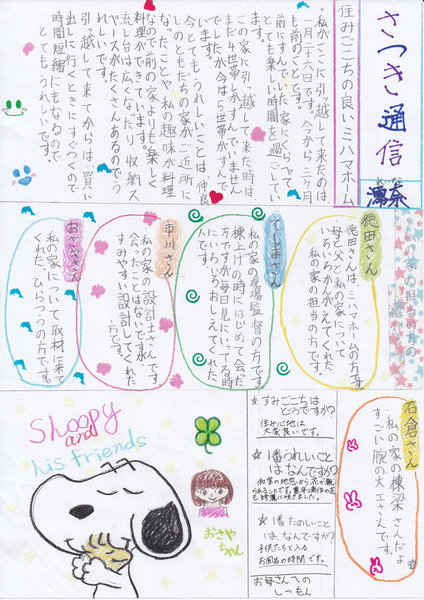 さつき通信
住みごこちの良いミハマホーム
私がここに引っ越して来たのは
一月二六日です。今から三ヶ月
も前のことです。
前にすんでいた家にくらべて
とても楽しい時間を過ごしてい
ます。
この家に引っ越して来た時は
まだ4世帯しかすんでいません
でしたが今は5世帯です。
今とてもうれしいことは、仲良
しのともだちの家がご近所に
なったことや、私の趣味が料理
なので前の家よりも楽しく
料理ができています。
流し台は広くなったり、収納ス
ペースがたくさんあるのでう
れしいです。
引っ越して来てからは、買い
出しに行くときにすぐつくので
時間短縮にもなるので
とてもうれしいです。
家の担当の方の
徳田さん
徳田さんはミハマホームの方です。
母と父と私の家について
いろいろかんがえてくれた
私の家の担当の方です。
てしまさん
私の家の現場監督の方です。
棟上げの時にはじめて会った
方ですが毎日見にいってる時
にいろいろおしえてくれた
人です。
市川さん
私の家の設計士さんです。
会ったことはないですが
すみやすい設計してくれた
方です。
おざきさん
私の家について取材に来て
くれた
石倉さん
私の家の棟梁さんだよ
すごい腕の大工さんです。
★すみごこちは
どうですか?
住み心地は
大変良いです。
★1番うれしいこと
はなんですか?
和室の地窓から花が観
られることです。
も綺麗に咲きました。
★1番たのしいこと
は、なんですか?
子供たちと入る
お風呂の時間です。
お母さんへの
しつもん
Snoopy
and
his friends
おさや
ちゃん